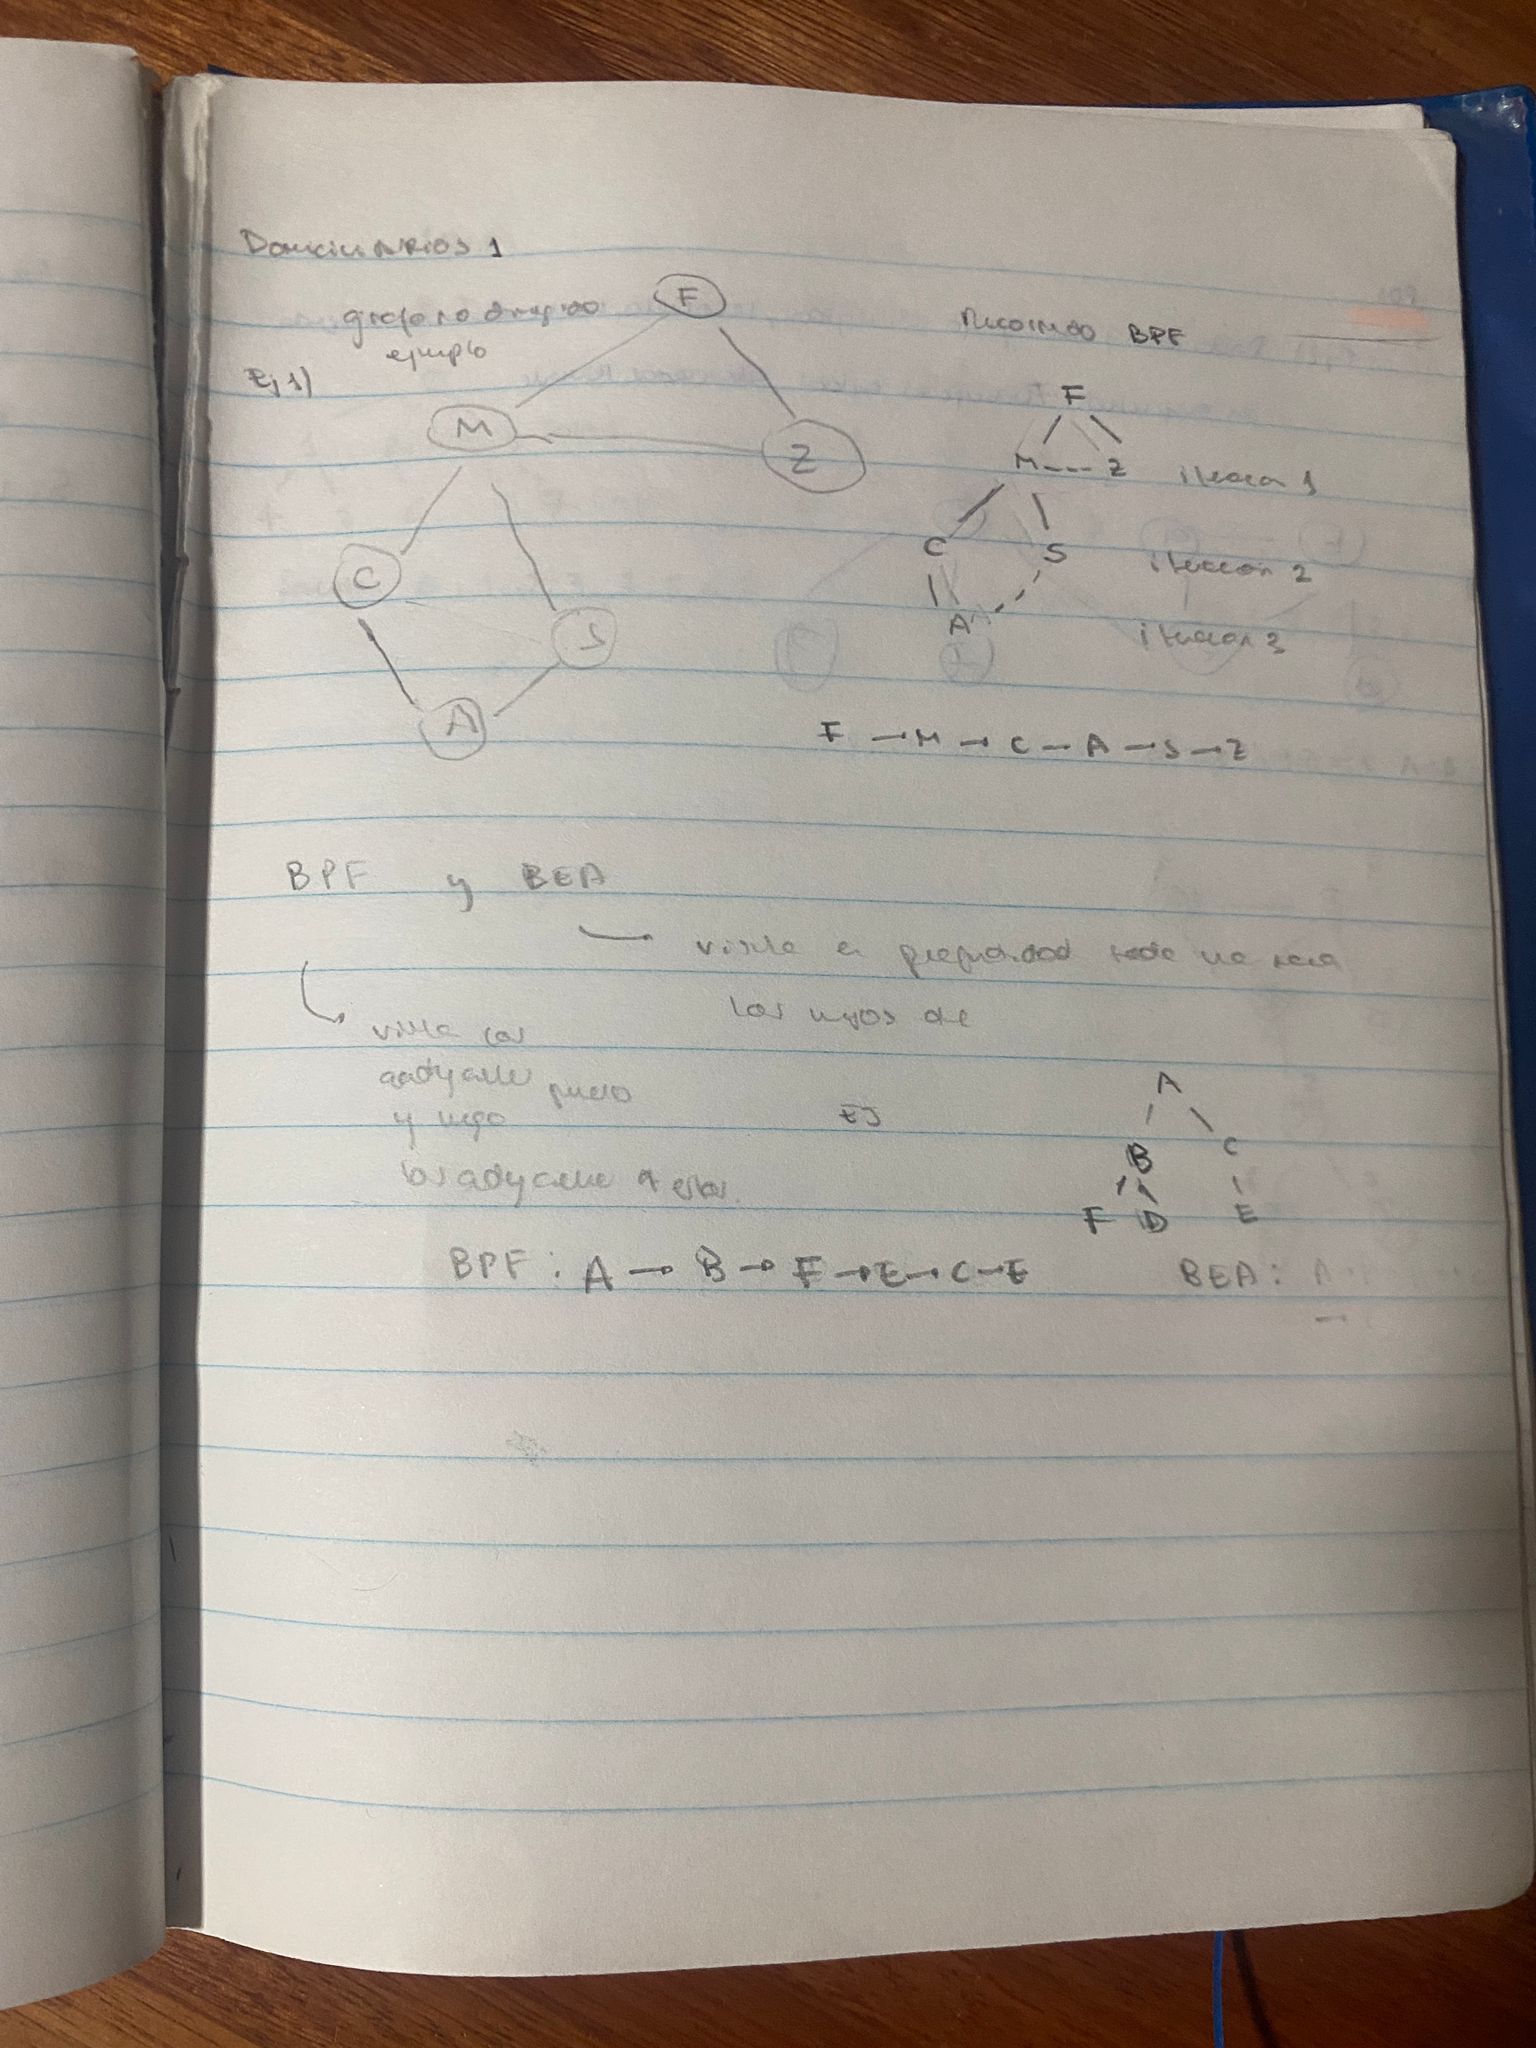 Domiciliarios 1
grafo no dirigido
ejemplo
Ej 1)
F
M
Z
C
S
A
Recorrido BPF
F
M Z iteracion 1
C S iteracion 2
A iteracion 3
F → M → C → A → S → Z
BPF y BEA
visita en profundidad
los hijos de
visita los
adyacente
y luego
los adyacente a estos.
EJ
A
B C
F D E
BPF: A → B → F → E → C → E
BEA: A